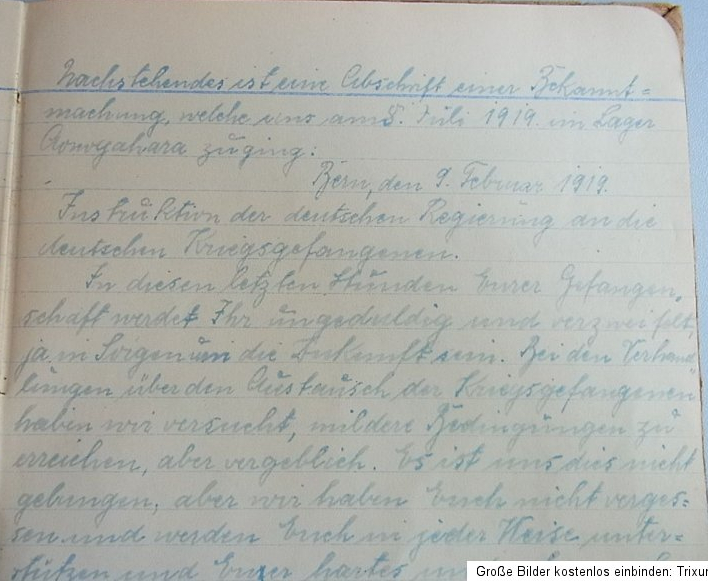 Nachstehendes ist eine Abschrift einer Bekannt=
machung, welche uns am 8. Juli 1919. im Lager
Aonogahara zuging:
Bern, den 9. Februar 1919.
Instruktion der deutschen Regierung an die
deutschen Kriegsgefangenen.
In diesen letzten Stunden Eurer Gefangen„
schaft werdet Ihr ungeduldig und verzweifelt,
ja in Sorgen um die Zukunft sein. Bei den Verhand„
lungen über den Austausch der Kriegsgefangenen
haben wir versucht, mildere Bedingungen zu
erreichen, aber vergeblich. Es ist uns dies nicht
gelungen, aber wir haben Euch nicht verges=
sen und werden Euch in jeder Weise unter=
stützen und Euer hartes
Große Bilder kostenlos einbinden: Trixu